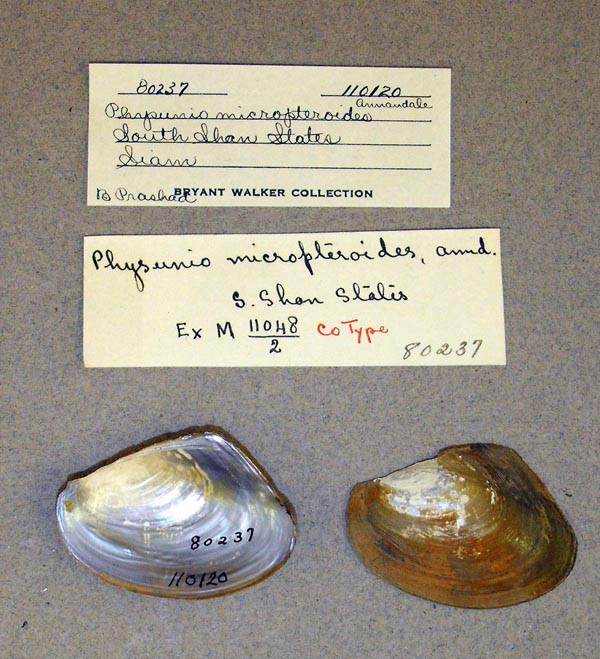 80237 110120
Annandale
Physunio micropteroides
South Shan States
Siam
B Prashad BRYANT WALKER COLLECTION
Physunio micropteroides, annd.
S. Shan States
Ex M 11048/2 CoType
80237
80237
110120